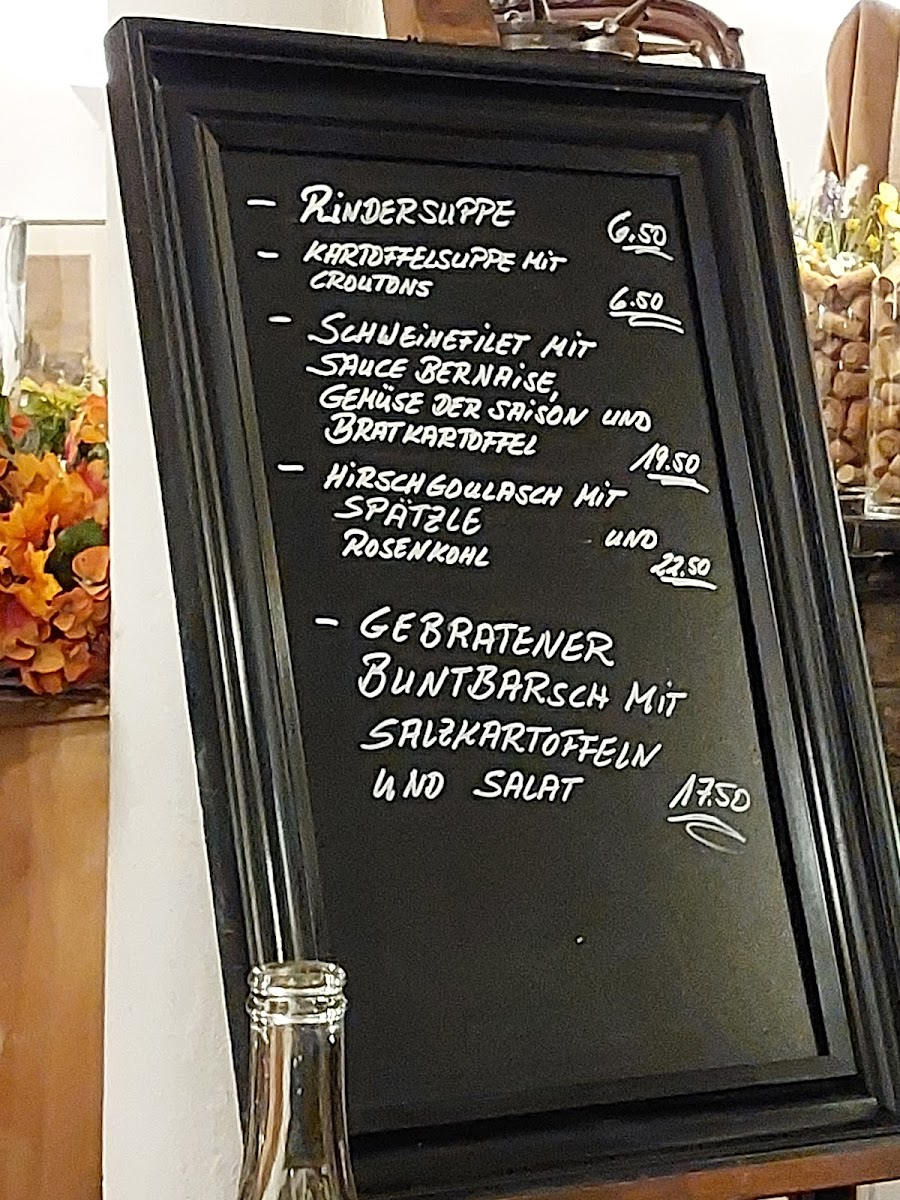 - RINDERSUPPE 6.50
- KARTOFFELSUPPE MIT
CROUTONS 6.50
- SCHWEINEFILET MIT
SAUCE BERNAISE,
GEMÜSE DER SAISON UND
BRATKARTOFFEL 19.50
- HIRSCHGOULASCH MIT
SPÄTZLE UND
ROSENKOHL 22.50
- GEBRATENER
BUNTBARSCH MIT
SALZKARTOFFELN
UND SALAT 17.50